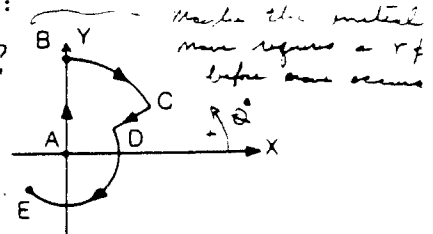 :
Maybe the initial
move requires a r &
before move occurs
B Y
?
C
A D
X
E